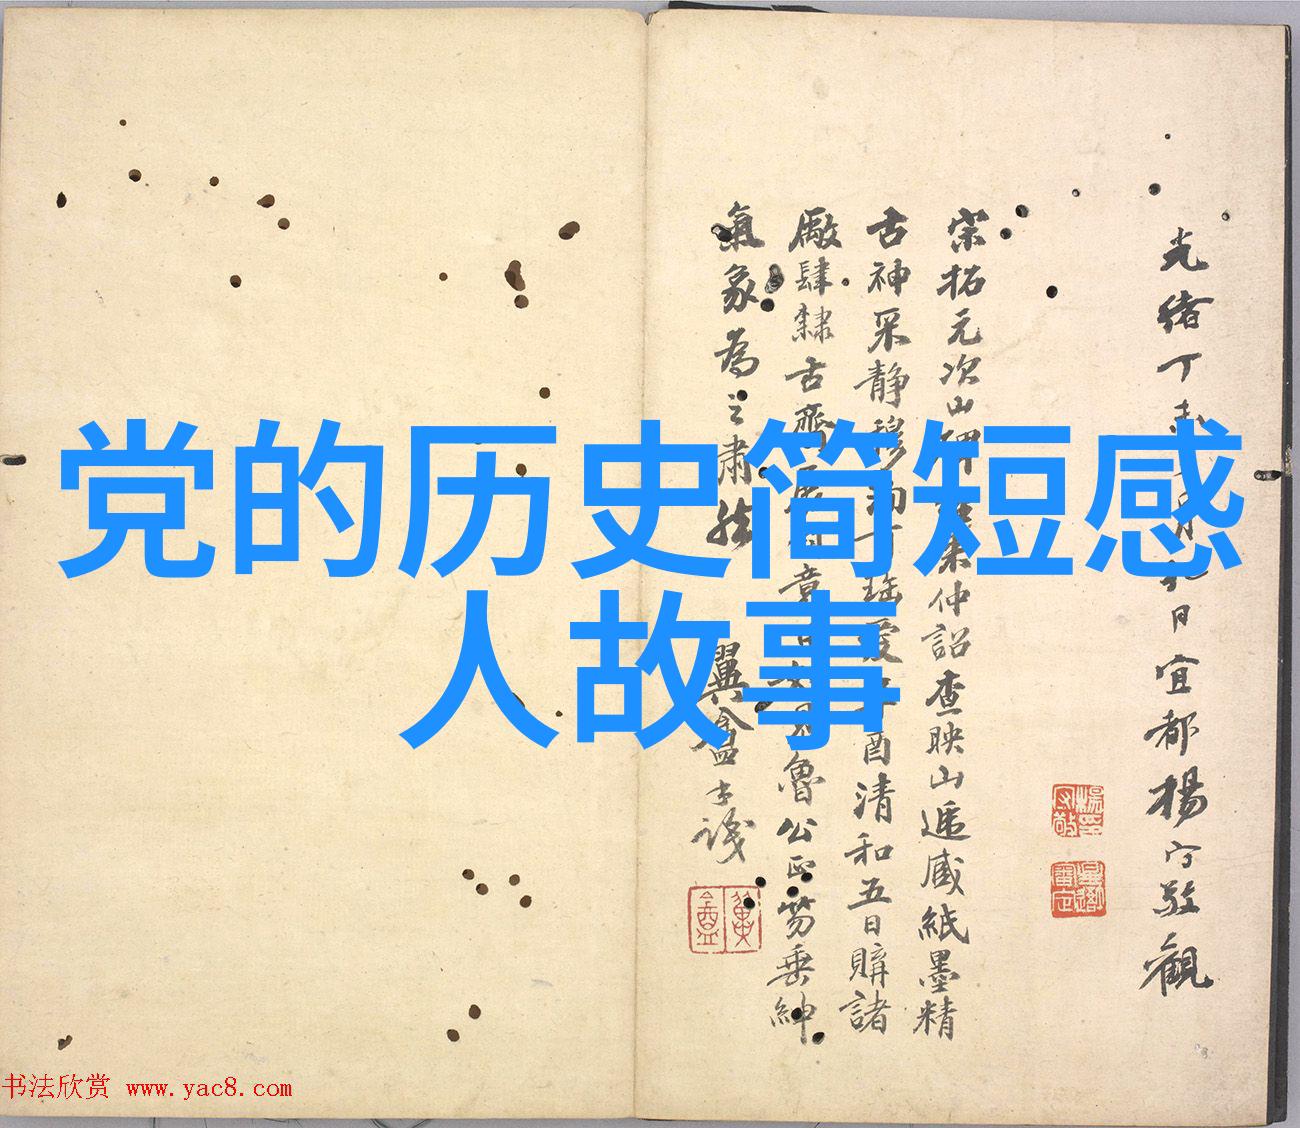 党的历史简短感
人故事
光绪丁未
日宜都楊守敬觀
宋拓元次山碑
仲詔查映山遞藏紙墨精
古神采静穆
酉清和五日購諸
廠肆隸古齋
魯公正笏垂紳
氣象為之肅然
翼盦
書法欣赏 www.yac8.com